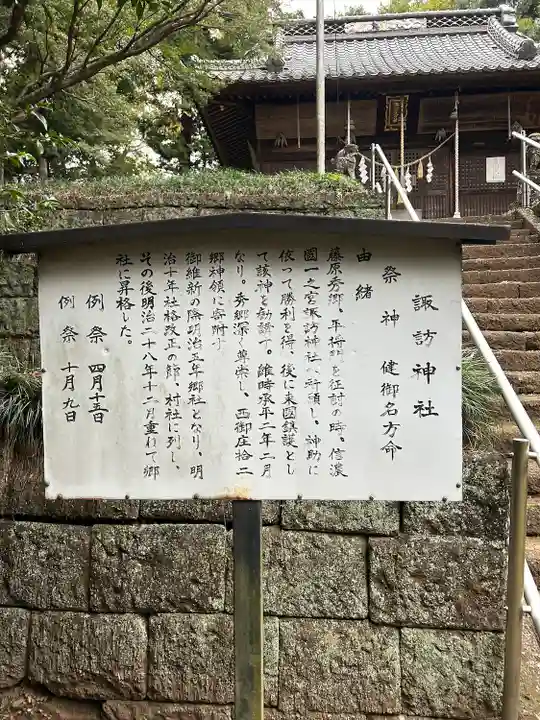 諏訪神社
祭神 健御名方命
由緒
藤原秀郷、平将門を征討の時。信濃
國一之宮諏訪神社へ祈願し、神助に
依って勝利を得、後に東国鎮護とし
て該神を勧請す。維時承平二年二月
なり。秀郷深く尊崇し、西御庄拾二
郷神領に寄附す
御維新の際明治五年郷社となり、明
治十年社格改正の節、村社に列し、
その後明治二十八年十二月重ねて郷
社に昇格した。
例祭 四月十五日
例祭 十月九日